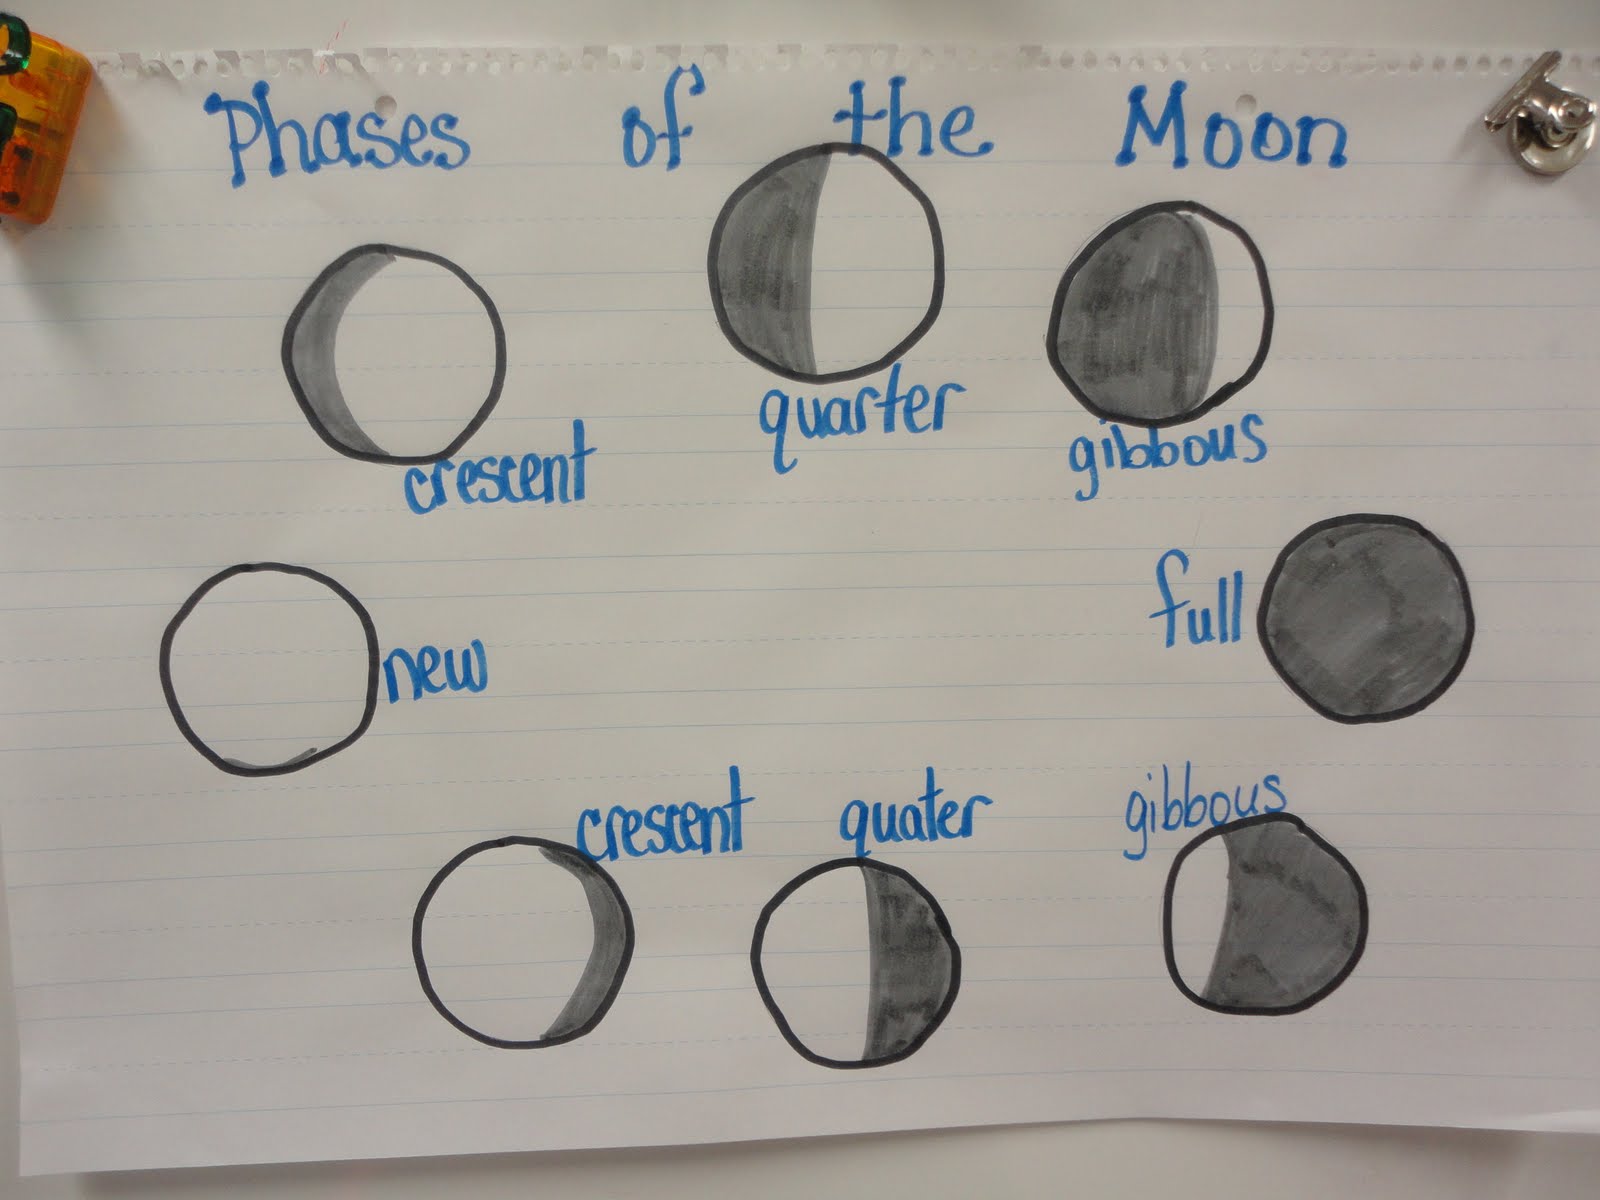 Phases of the Moon
crescent
quarter
gibbous
new
full
crescent
quater
gibbous